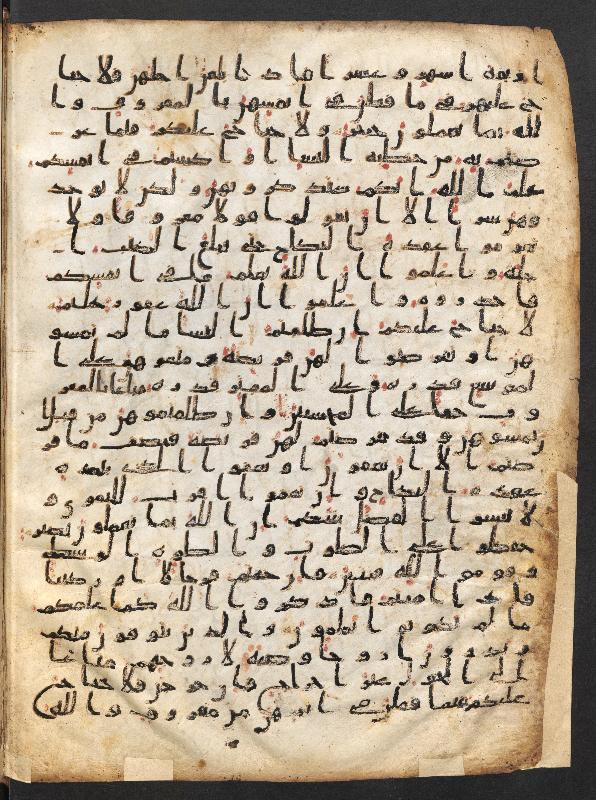 اربعه اشهر و عشرا فاذا بلغن اجلهن فلا جنا
ح عليكم فيما فعلن في انفسهن بالمعروف و ا
لله بما تعملون خبير و لا جناح عليكم فيما عر
ضتم به من خطبه النسا او اكننتم في انفسكم
علم الله انكم ستذكرونهن و لكن لا توعد
وهن سرا الا ان تقولوا قولا معروفا ولا
تعزموا عقده النكاح حتى يبلغ الكتب ا
جله و اعلموا ان الله يعلم ما في انفسكم
فاحذروه و اعلموا ان الله غفور حليم
لا جناح عليكم ان طلقتم النسا ما لم تمسو
هن او تفرضوا لهن فريضه و متعوهن على ا
لموسع قدره و على المقتر قدره متاعا بالمعر
وف حقا على المحسنين و ان طلقتموهن من قبل ا
ن تمسوهن و قد فرضتم لهن فريضه فنصف ما فر
ضتم الا ان يعفون او يعفوا الذي بيده
عقده النكاح و ان تعفوا اقرب للتقوى و
لا تنسوا الفضل بينكم ان الله بما تعملون بصير
حفظوا على الصلوت و الصلوه الوسطى
و قوموا لله قنتين فان خفتم فرجالا او ركبنا
فاذا امنتم فاذكروا الله كما علمكم
ما لم تكونوا تعلمون و الذين يتوفون منكم
و يذرون ازوجا وصيه لازوجهم متاعا
الى الحول غير اخراج فان خرجن فلا جناح
عليكم فيما فعلن في انفسهن من معروف و الله